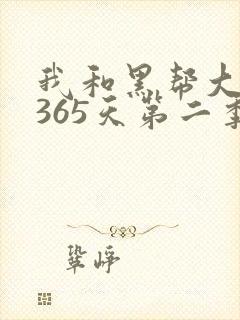 我和黑帮大
365天第二季
鞏峥